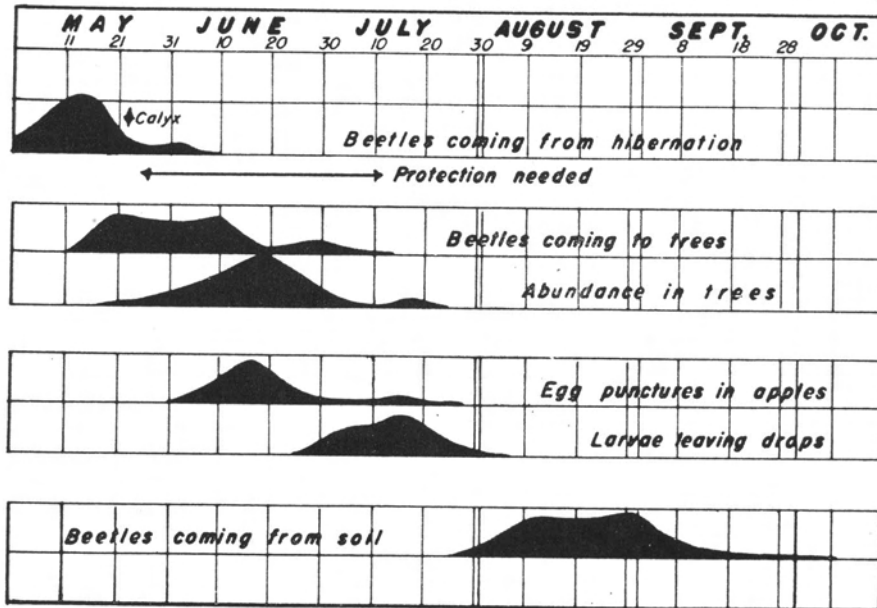 MAY JUNE JULY AUGUST SEPT. OCT.
11 21 31 10 20 30 10 20 30 9 19 29 8 18 28
Calyx
Beetles coming from hibernation
Protection needed
Beetles coming to trees
Abundance in trees
Egg punctures in apples
Larvae leaving drops
Beetles coming from soil